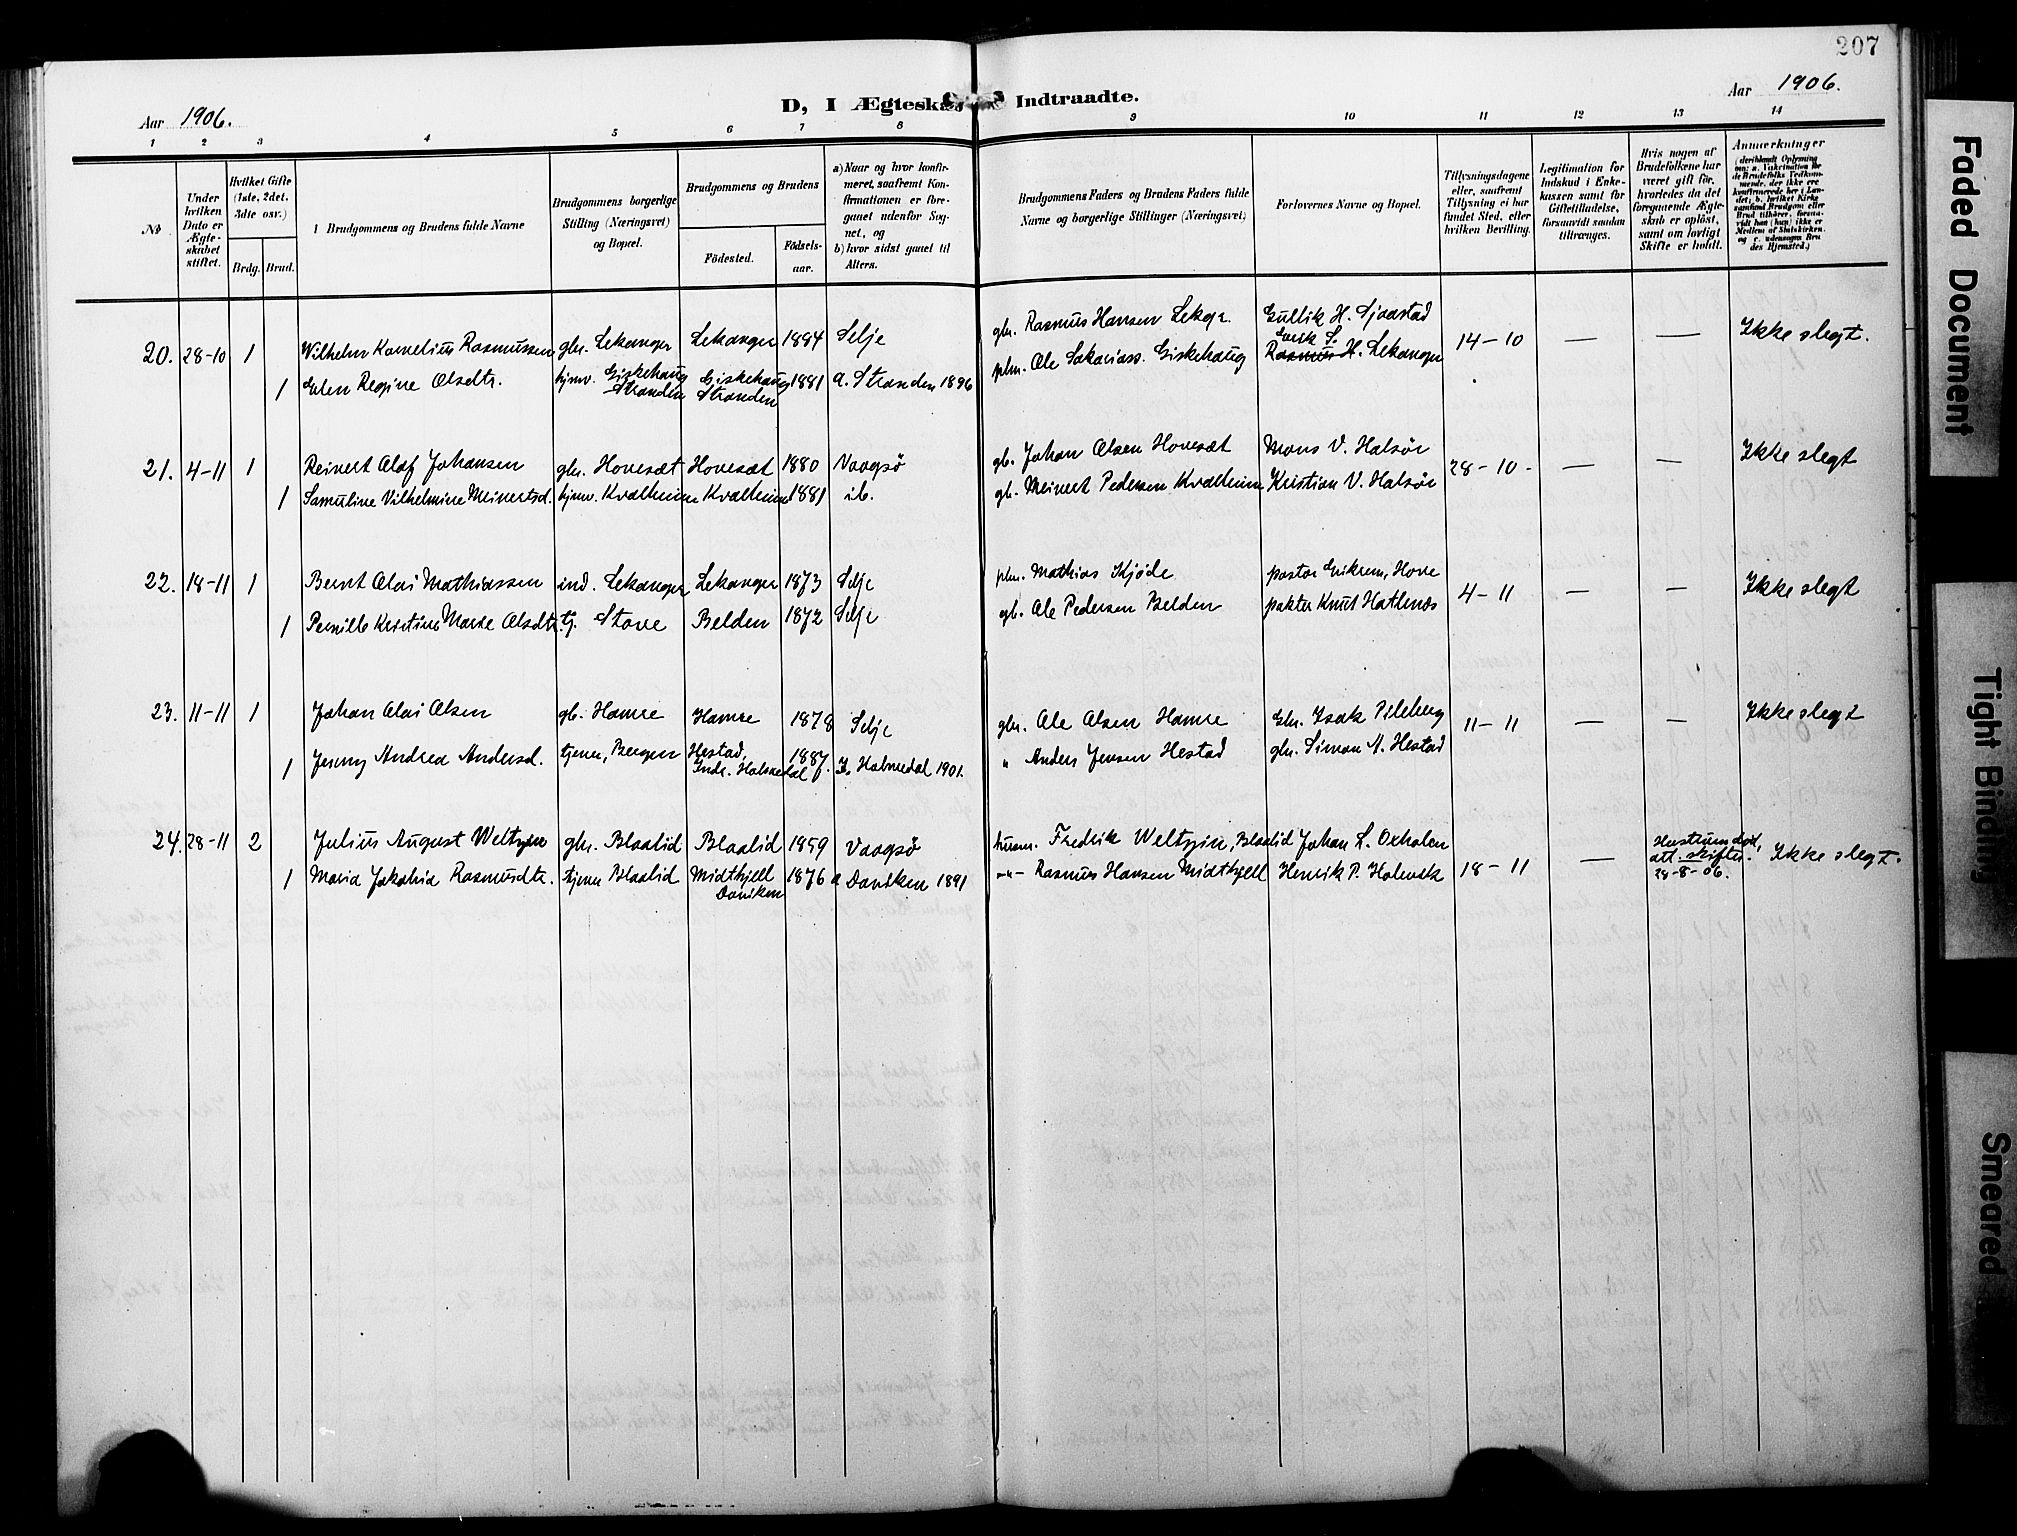 207
D, I Ægteskab Indtraadte.
Aar 1906.
Aar 1906.
1 2 3 4 5 6 7 8 9 10 11 12 13 14
No.
Under hvilken Dato er Ægteskabet stiftet.
Hvilket Gifte (1ste, 2det, 3dte osv.)
Brdg. Brud.
Brudgommens og Brudens fulde Navne
Brudgommens borgerlige Stilling (Næringsvei) og Bopæl.
Brudgommens og Brudens
Fødested.
Fødselsaar.
a) Naar og hvor konfirmeret, saafremt Konfirmationen er foregaaet udenfor Sognet, og
b) hvor sidst gaaet til Alters.
Brudgommens Faders og Brudens Faders fulde Navne og borgerlige Stillinger (Næringsvei)
Forlovernes Navne og Bopæl.
Tillysningsdagene eller, saafremt Tillysning ei har fundet Sted, efter hvilken Bevilling.
Legitimation for Indskud i Enkekassen samt for Giftetilladelse, forsaavidt saadan tiltrænges.
Hvis nogen af Brudefolkene har været gift før, hvorledes da det foregaaende Ægteskab er opløst, samt om lovligt Skifte er holdt.
Anmærkninger
20. 28-10 1 Wilhelm Kornelius Rasmussen gbr. Lekanger Lekanger 1884 Selje gbr. Rasmus Hansen Lekgr. Gullik H. Sjaastad 14-10 — — Ikke slegt.
1 Elen Regine Olsdtr. hjmv. Giskehaug Stranden Giskehaug Stranden 1881 a. Stranden 1896 plm. Ole Sakariass. Giskehaug Erik S. Rasmus H. Lekanger
21. 4-11 1 Reinert Olaf Johansen gbr. Hovesæt Hovesæt 1880 Vaagsø gb. Johan Olsen Hovesæt Mons V. Halsør 28-10- — — Ikke slegt
1 Samuline Vilhelmine Meinertsd. hjmv. Kvalheim Kvalheim 1881 ib. gb. Meinert Pedersen Kvalheim Kristian V. Halsør
22. 18-11 1 Bernt Olai Mathiassen ind. Lekanger Lekanger 1873 Selje plm. Mathias Kjøde pastor Eikrem, Hove 4-11 — — Ikke slegt
1 Pernille Kristine Marie Olsdtr. tj. Stove Belden 1872 Selje gb. Ole Pedersen Belden pakter Knut Hatlenæs
23. 11-11 1 Johan Olai Olsen gb. Hamre Hamre 1878 Selje gbr. Ole Olsen Hamre Gbr. Isak Pileberg 11-11 — — Ikke slegt
1 Jenny Andrea Andersd. tjener, Bergen Hestad, Indr. Holmedal 1887. I. Holmedal 1901. " Anders Jensen Hestad gbr. Simon A. Hestad
24. 28-11 2 Julius August Weltzin gbr. Blaalid Blaalid 1859 Vaagsø husm. Fredrik Weltzin, Blaalid Johan L. Oxholen 18-11 — Hustruen død, att. skifter. 28-8-06. Ikke slegt.
1 Maria Jakobia Rasmusdtr. tjener Blaalid Midthjell Daviken 1876 a Daviken 1891 -"- Rasmus Hansen Midthjell Henrik P. Holevik
Faded Document
Tight Binding
Smeared